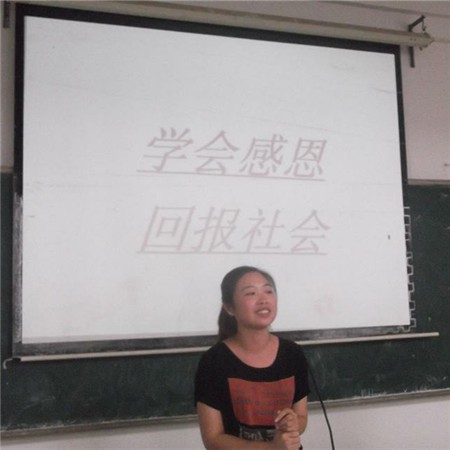 学会感恩
回报社会